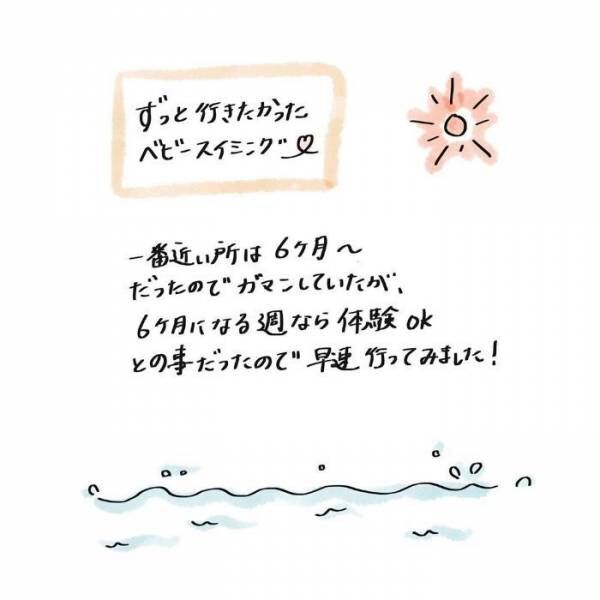 ずっと行きたかった
ベビースイミング♡
一番近い所は6ケ月〜
だったのでガマンしていたが、
6ケ月になる週なら体験ok
との事だったので早速行ってみました!